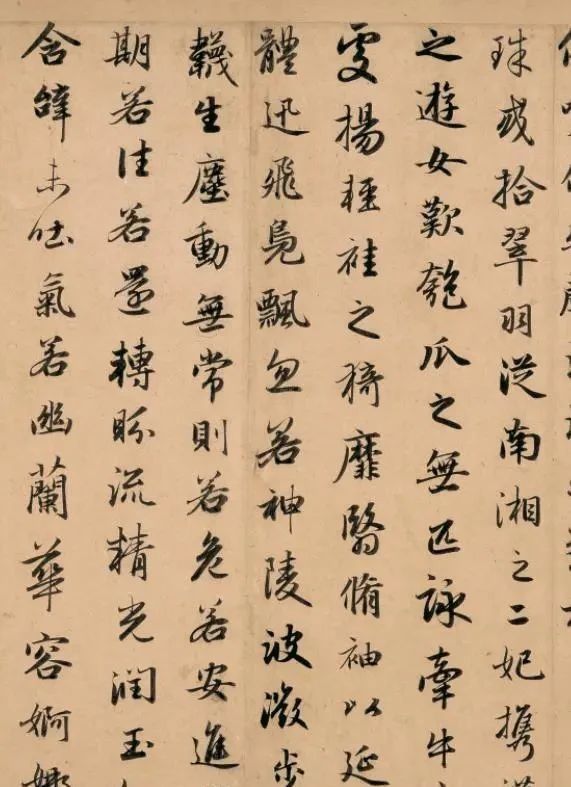 珠或拾翠羽從南湘之二妃攜
之遊女歎匏瓜之無匹詠牽牛
處揚輕袿之猗靡翳脩袖以延
體迅飛鳧飄忽若神陵波微步
韈生塵動無常則若危若安進
期若往若還轉眄流精光潤玉
含辭未吐氣若幽蘭華容婀娜